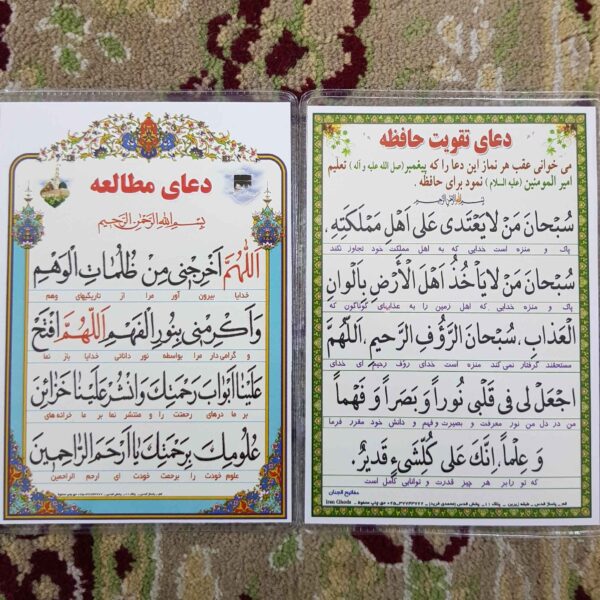 دعای تقویت حافظه
می خوانی عقب هر نماز این دعا را که پیغمبر(صل الله علیه و آله) تعلیم
امیر المومنین (علیه السلام) نمود برای حافظه.
سُبْحانَ مَنْ لایَعْتَدی عَلی اَهْلِ مَمْلَکَتِهِ.
پاک و منزه است خدایی که به اهل مملکت خود تجاوز نکند
سُبْحانَ مَنْ لایَأخُذُ اَهْلَ الْاَرْضِ بِاَلْوانِ
پاک و منزه است خدایی که اهل زمین را به عذابهای گوناگون که
الْعَذابِ. سُبْحانَ الرَّؤُفِ الرَّحیمِ. اَللّهُمَّ
مستحقند گرفتار نمی کند منزه است خدای رؤف رحیم ای خدای
اجْعَلْ لی فی قَلْبی نُوراً وَ بَصَراً وَ فَهْماً
من در دل من نور معرفت و بصیرت و فهم و دانش خود مقرر فرما
وَ عِلْماً. اِنَّکَ عَلی کُلِّشَیءٍ قَدیرٌ.
که تو را بر هر چیز قدرت و توانایی کامل است
مفاتیح الجنان
دعای مطالعه
بِسْمِ اللهِ الرَّحْمنِ الرَّحیمِ
اَللّهُمَّ اَخْرِجْنی مِنْ ظُلُماتِ الْوَهْمِ
خدایا بیرون آور مرا از تاریکیهای وهم
وَ اَکْرِمْنی بِنُورِ الْفَهْمِ اَللّهُمَّ افْتَحْ
و گرامی دار مرا بواسطه نور دانائی خدایا باز نما
عَلَیْنا اَبْوابَ رَحْمَتِکَ وَ انْشُرْ عَلَیْنا خَزائِنَ
بر ما درهای رحمتت را و منتشر نما بر ما خزانه های
عُلُومِکَ بِرَحْمَتِکَ یا اَرْحَمَ الرّاحِمینَ
علوم خودت را برحمت خودت ای ارحم الراحمین